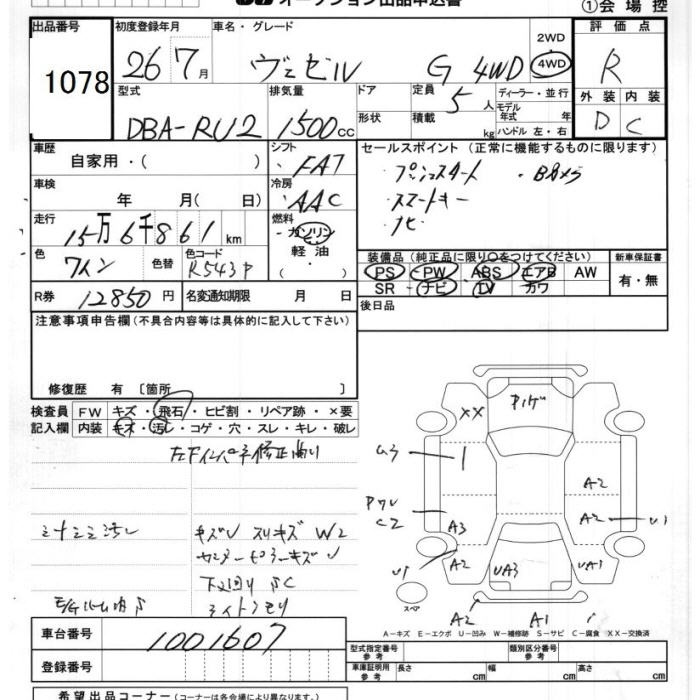 オークション出品申込書
①会場控
出品番号 1078
初度登録年月 26 7月
車名・グレード ヴェゼル G 4WD
2WD 4WD
評価点 R
外装 内装
D C
型式 DBA-RU2
排気量 1500cc
ドア
形状
定員 5人
積載 kg
ディーラー・並行
モデル年式 年
ハンドル 左・右
車歴 自家用・( )
シフト FAT
セールスポイント (正常に機能するものに限ります)
・プッシュスタート
・スマートキー
・ナビ
車検 年 月( 日)
冷房 AAC
走行 15万6千861km
燃料 ガソリン・軽油・
色 ワイン
色替
色コード R543P
装備品 (純正品に限り○をつけてください)
PS PW ABS エアB AW
SR ナビ TV カワ
新車保証書 有・無
R券 12850円
名変通知期限 月 日
後日品
注意事項申告欄 (不具合内容等は具体的に記入して下さい)
修復歴 有 [箇所 ]
検査員記入欄
FW キズ・飛石・ヒビ割・リペア跡・×要
内装 キズ・汚レ・コゲ・穴・スレ・キレ・破レ
キズU スリキズ W2
センターピラーキズU
下廻り SC
ライトクモリ
車台番号 1001607
登録番号
XX
A3
A2
A2
A2
UA3
UA3
A2
A1
U1
U1
スペア
A-キズ E-エクボ U-凹み W-補修跡 S-サビ C-腐食 XX-交換済
型式指定番号 参考
類別区分番号 参考
車庫証明用 参考 長さ cm 幅 cm 高さ cm
希望出品コーナー (コーナーは各会場により異なります。)